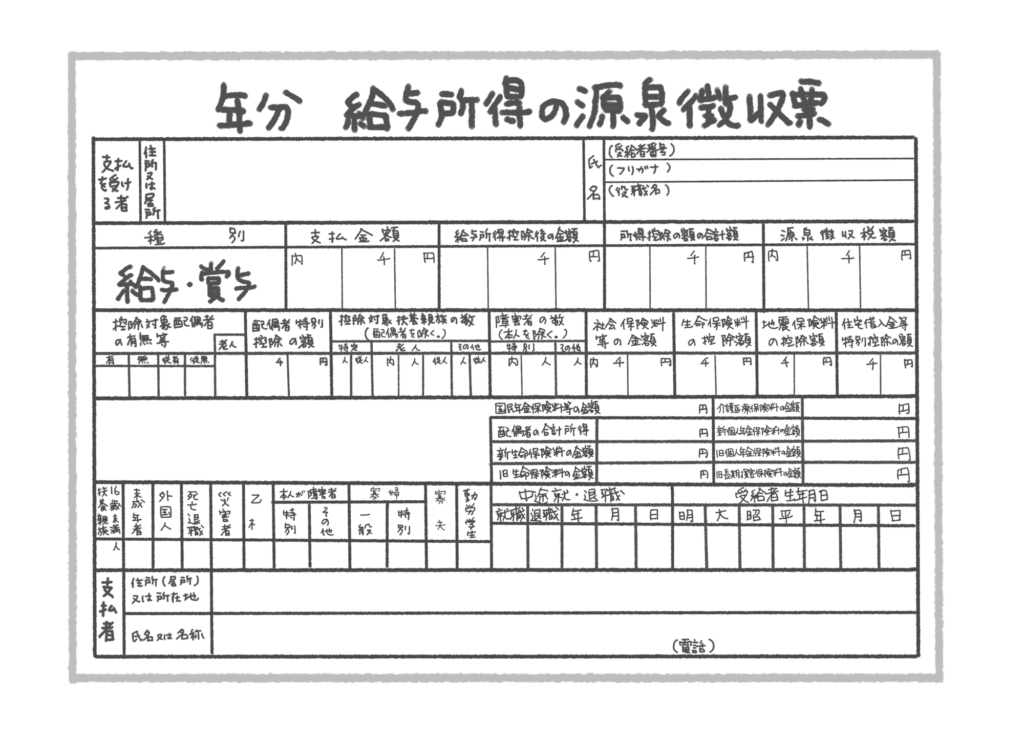 年分 給与所得の源泉徴収票
支払を受ける者
住所又は居所
氏名
(受給者番号)
(フリガナ)
(役職名)
種別 支払金額 給与所得控除後の金額 所得控除の額の合計額 源泉徴収税額
給与・賞与
内 千 円 千 円 千 円 内 千 円
控除対象配偶者の有無等
老人
有 無 従有 従無
配偶者特別控除の額
千 円
控除対象扶養親族の数(配偶者を除く。)
特定 老人 その他
人 従人 内 人 従人 人 従人
障害者の数(本人を除く。)
特別 その他
内 人 人
社会保険料等の金額
内 千 円
生命保険料の控除額
千 円
地震保険料の控除額
千 円
住宅借入金等特別控除の額
千 円
国民年金保険料等の金額 円 介護医療保険料の金額 円
配偶者の合計所得 円 新個人年金保険料の金額 円
新生命保険料の金額 円 旧個人年金保険料の金額 円
旧生命保険料の金額 円 旧長期損害保険料の金額 円
16歳未満扶養親族
人
未成年者
外国人
死亡退職
災害者
乙
本人が障害者
特別 その他
寡婦
一般 特別
寡夫
勤労学生
中途就・退職 受給者生年月日
就職 退職 年 月 日 明 大 昭 平 年 月 日
支払者
住所(居所)又は所在地
氏名又は名称
(電話)